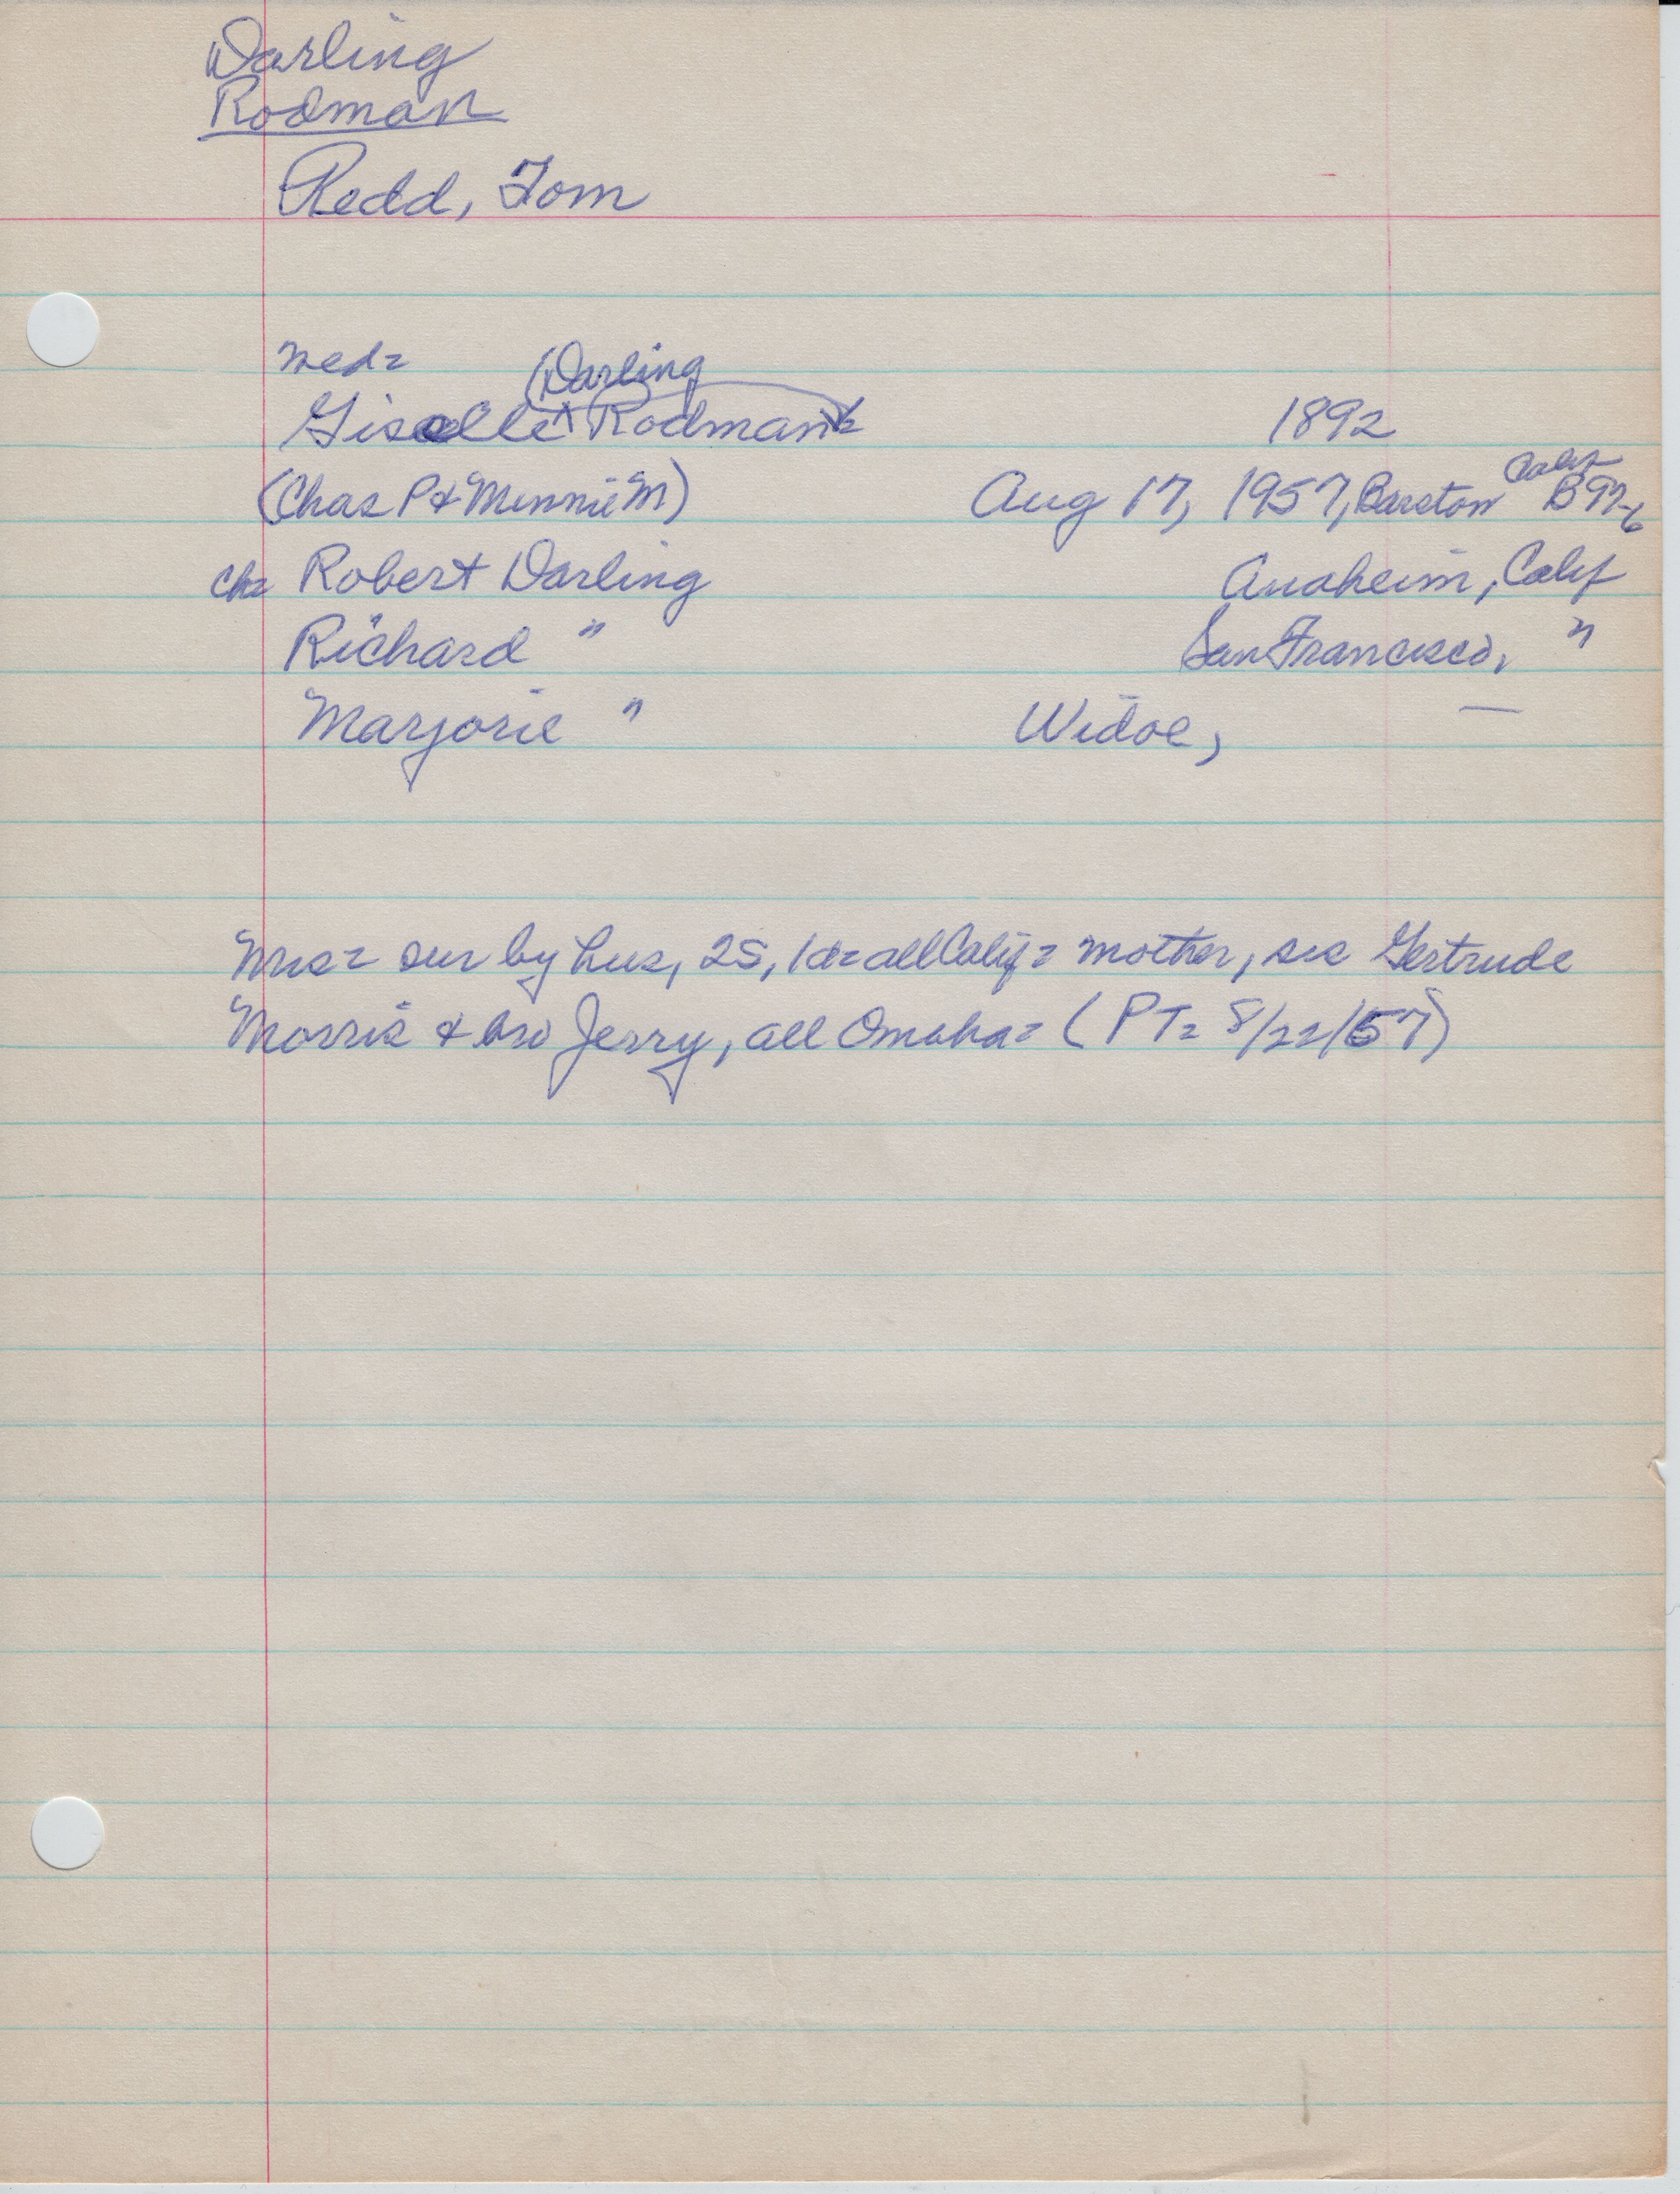 Darling
Rodman
Redd, Tom
med=
(Darling
Giselle ^ Rodman=
1892
(Chas P & Minnie M)
Aug 17, 1957, Barstow Calif B92-6
Ch= Robert Darling
Anaheim, Calif
Richard "
San Francisco, "
Marjorie "
Widoe, —
Mrs= sur by hus, 2S, 1d= all Calif= mother, sis Gertrude
Morris & bro Jerry, all Omaha= (PT= 8/22/57)